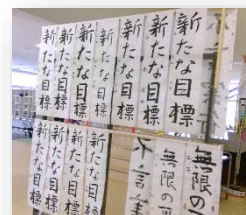 新たな目標
新たな目標
新たな目標
新たな目標
新たな目標
新たな目標
新たな目標
新たな目標
新たな目標
新たな目標
新たな目標
不言実
無限の可
無限の